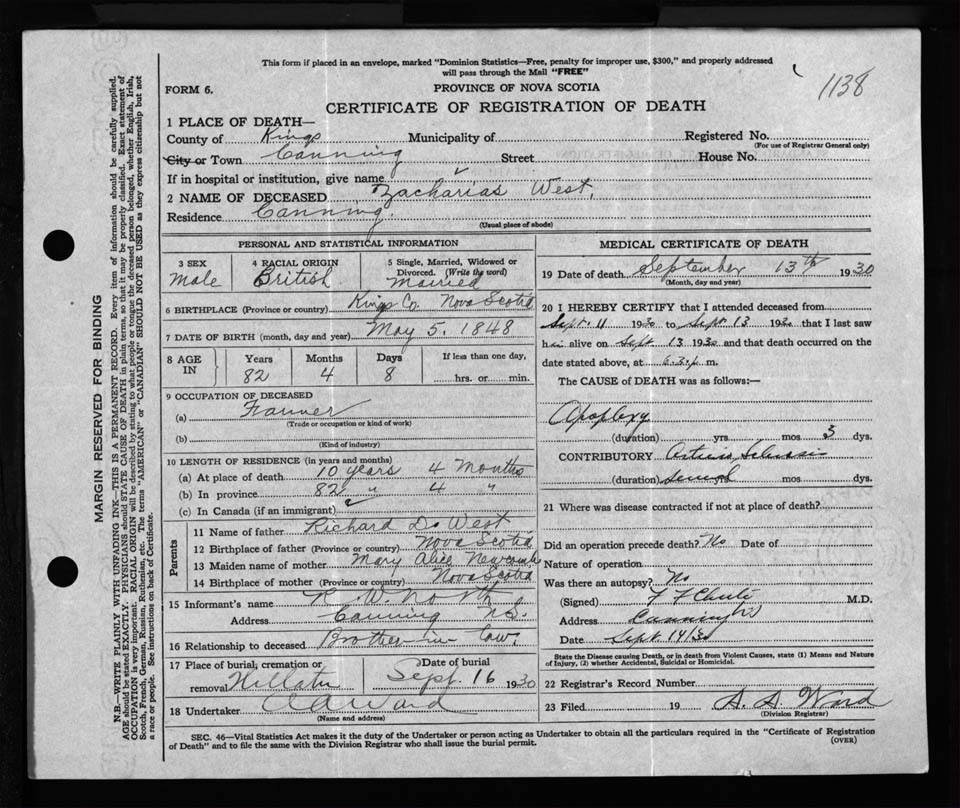 This form if placed in an envelope, marked "Dominion Statistics—Free, penalty for improper use, $300," and properly addressed
will pass through the Mail "FREE"
1138
FORM 6.
PROVINCE OF NOVA SCOTIA
CERTIFICATE OF REGISTRATION OF DEATH
1 PLACE OF DEATH—
County of Kings Municipality of Registered No.
(For use of Registrar General only)
City or Town Canning Street House No.
If in hospital or institution, give name
2 NAME OF DECEASED Zacharias West
Residence Canning.
(Usual place of abode)
PERSONAL AND STATISTICAL INFORMATION
3 SEX
Male
4 RACIAL ORIGIN
British
5 Single, Married, Widowed or
Divorced. (Write the word)
Married
6 BIRTHPLACE (Province or country) Kings Co. Nova Scotia
7 DATE OF BIRTH (month, day and year) May 5, 1848
8 AGE IN
Years 82
Months 4
Days 8
If less than one day,
hrs. or min.
9 OCCUPATION OF DECEASED
(a) Farmer
(Trade or occupation or kind of work)
(b)
(Kind of industry)
10 LENGTH OF RESIDENCE (in years and months)
(a) At place of death 10 years 4 Months
(b) In province 82 " 4 "
(c) In Canada (if an immigrant)
Parents
11 Name of father Richard D. West
12 Birthplace of father (Province or country) Nova Scotia
13 Maiden name of mother Mary Alice Newcomb
14 Birthplace of mother (Province or country) Nova Scotia
15 Informant's name R W North
Address Canning N.S.
16 Relationship to deceased Brother-in-law
17 Place of burial, cremation or
removal
Date of burial
Sept. 16 1930
18 Undertaker Ward
(Name and address)
MEDICAL CERTIFICATE OF DEATH
19 Date of death September 13th 1930
(Month, day and year)
20 I HEREBY CERTIFY that I attended deceased from
Sept. 11 1930 to Sept. 13 1930 that I last saw
him alive on Sept 13 1930 and that death occurred on the
date stated above, at 6.30 p m.
The CAUSE of DEATH was as follows:—
Apoplexy
(duration) yrs mos 3 dys.
CONTRIBUTORY Arterio Sclerosis
(duration) Several mos dys.
21 Where was disease contracted if not at place of death?
Did an operation precede death? No Date of
Nature of operation
Was there an autopsy? No
(Signed) F F Chute M.D.
Address Canning NS
Date Sept. 14/30
State the Disease causing Death, or in death from Violent Causes, state (1) Means and Nature
of Injury, (2) whether Accidental, Suicidal or Homicidal.
22 Registrar's Record Number
23 Filed 19 Ward
(Division Registrar)
SEC. 46—Vital Statistics Act makes it the duty of the Undertaker or person acting as Undertaker to obtain all the particulars required in the "Certificate of Registration
of Death" and to file the same with the Division Registrar who shall issue the burial permit.
(OVER)
MARGIN RESERVED FOR BINDING
N.B.—WRITE PLAINLY WITH UNFADING INK—THIS IS A PERMANENT RECORD. Every item of information should be carefully supplied.
AGE should be stated EXACTLY. PHYSICIANS should STATE CAUSE OF DEATH in plain terms, so that it may be properly classified. Exact statement of
OCCUPATION is very important. RACIAL ORIGIN will be described by stating to what people or tongue the deceased person belonged, whether English, Irish,
Scotch, French, German, Russian, Ruthenian, etc. The terms "AMERICAN" or "CANADIAN" SHOULD NOT BE USED as they express citizenship but not
a race or people. See instructions on back of Certificate.